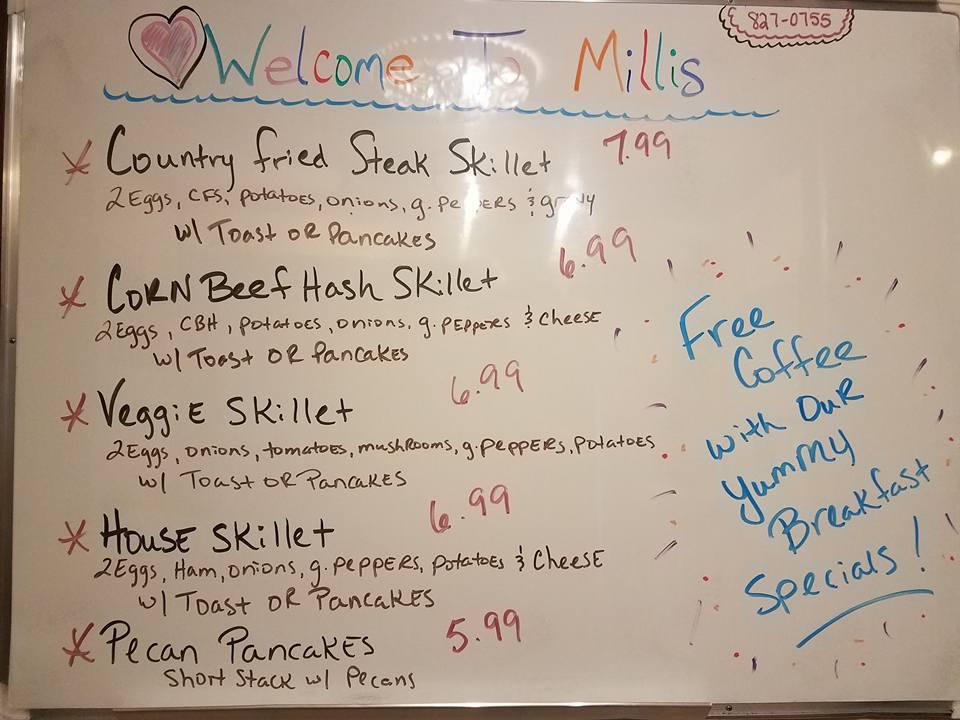 827-0755
Welcome To Millis
* Country Fried Steak Skillet 7.99
2 Eggs, CFS, Potatoes, Onions, g. Peppers & gravy
w/ Toast OR Pancakes
* Corn Beef Hash Skillet 6.99
2 Eggs, CBH, Potatoes, Onions, g. Peppers & Cheese
w/ Toast OR Pancakes
* Veggie Skillet 6.99
2 Eggs, Onions, tomatoes, mushrooms, g. Peppers, Potatoes
w/ Toast OR Pancakes
* House Skillet 6.99
2 Eggs, Ham, Onions, g. Peppers, Potatoes & Cheese
w/ Toast OR Pancakes
* Pecan Pancakes 5.99
Short Stack w/ Pecans
Free
Coffee
with Our
Yummy
Breakfast
Specials!